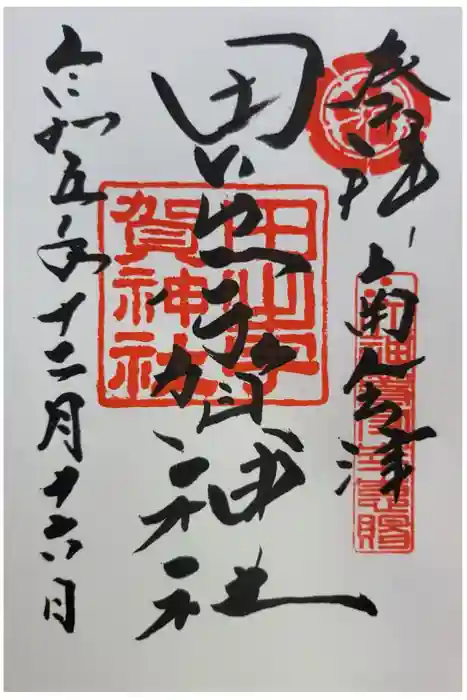 奉拝 南会津
田出宇賀神社
令和五年十二月十六日
田出宇
賀神社